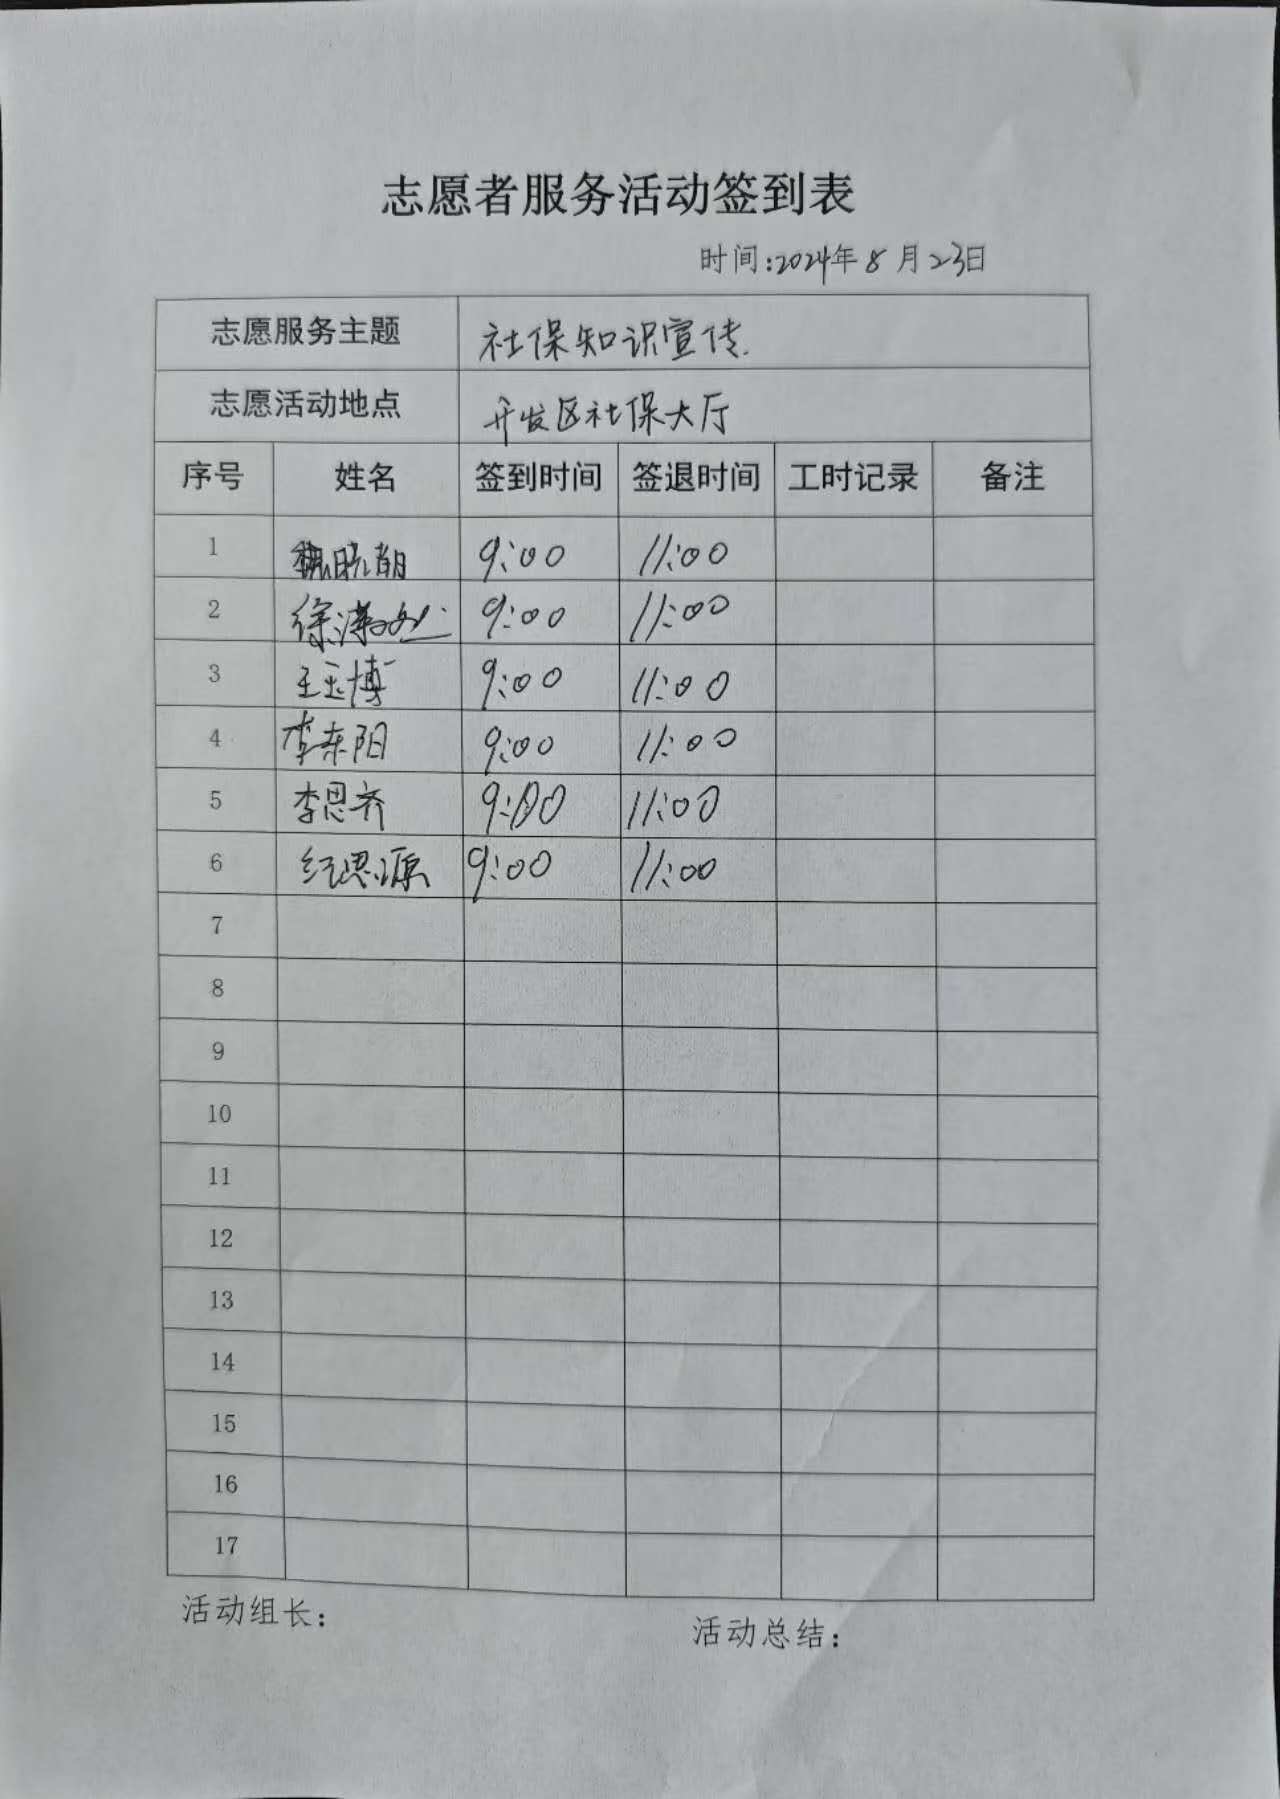 志愿者服务活动签到表
时间:2024年8月23日
志愿服务主题 社保知识宣传.
志愿活动地点 开发区社保大厅
序号 姓名 签到时间 签退时间 工时记录 备注
1 魏晓朝 9:00 11:00
2 徐 9:00 11:00
3 王玉博 9:00 11:00
4 李东阳 9:00 11:00
5 李思齐 9:00 11:00
6 纪思源 9:00 11:00
7
8
9
10
11
12
13
14
15
16
17
活动组长: 活动总结: